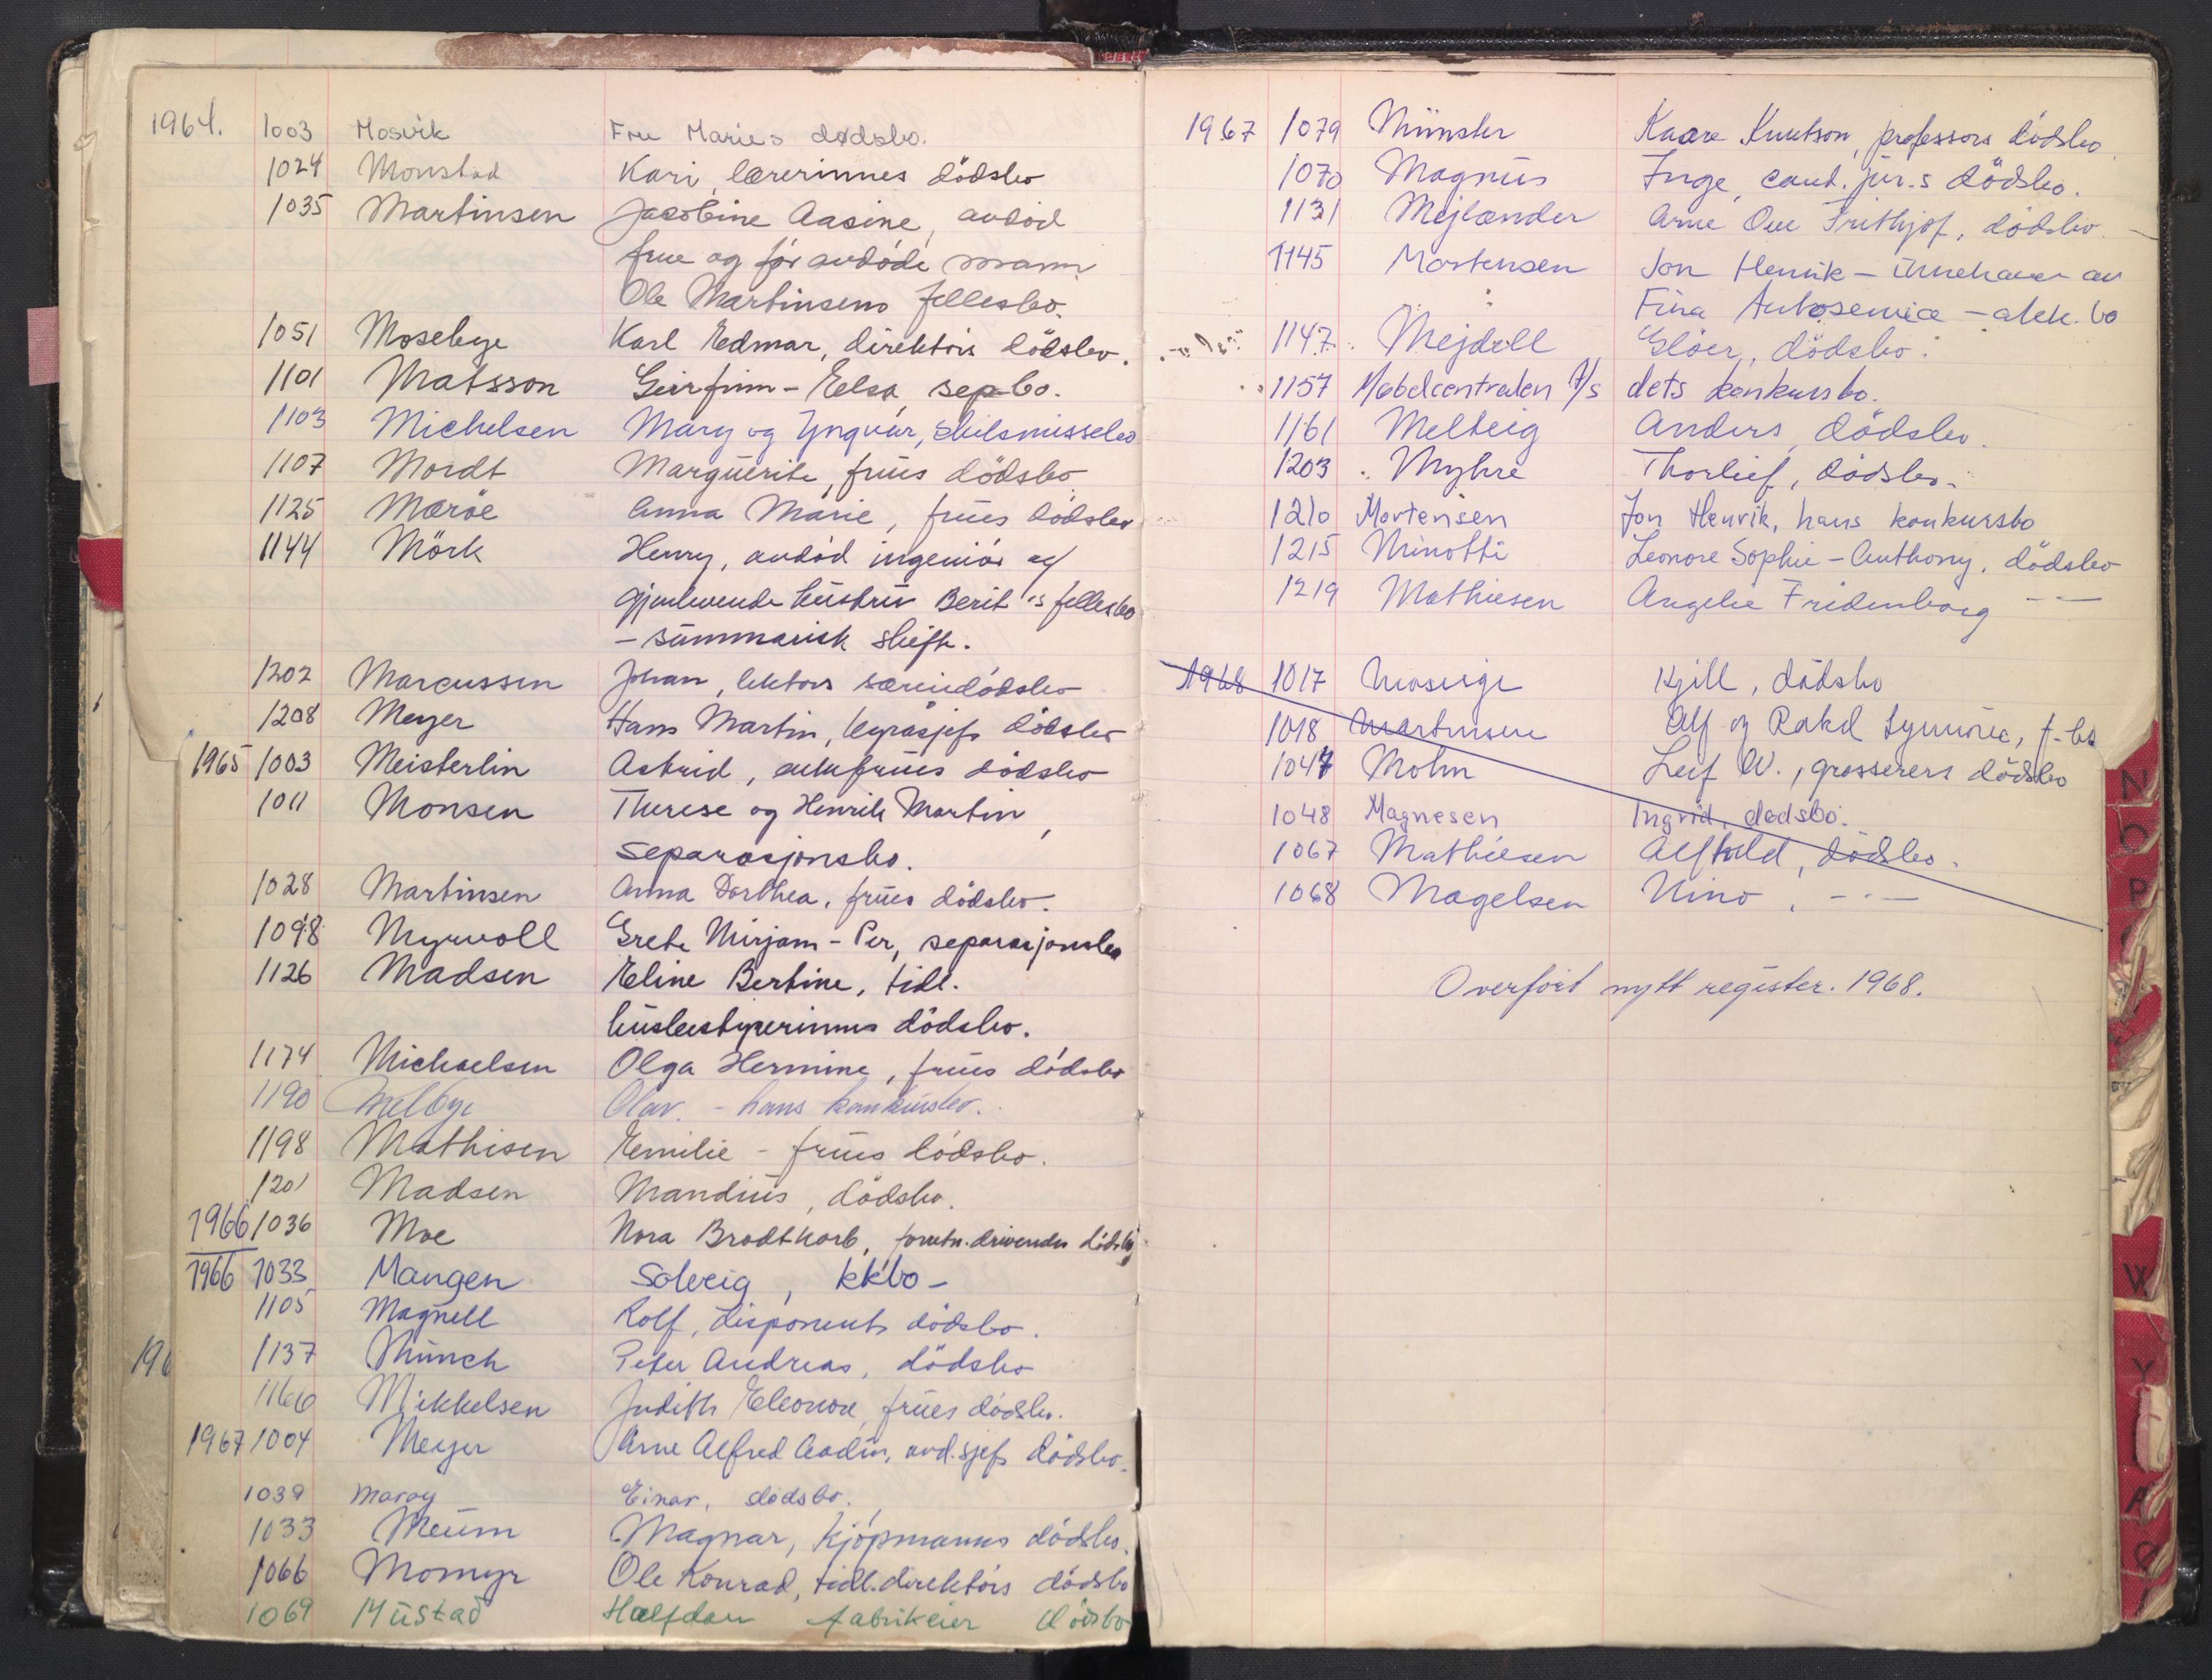 1964. 1003 Mosvik Fru Maries dødsbo.
1024 Monstad Kari, lærerinnes dödsbo
1035 Martinsen Jacobine Aasine, avdöd
frue og før avdöde mann
Ole Martinsens fellesbo.
1051 Mosebye Karl Edmar, direktörs dödsbo.
1101 Matsson Geirfinn - Elsa, sep.bo.
1103 Michelsen Mary og Yngvar, skilsmissebo
1107 Mordt Marguerite, frues dödsbo
1125 Maröe Anna Marie, frues dödsbo
1144 Mörk Henry, avdöd ingeniör og
gjenlevende hustru Berit's fellesbo
- summarisk skifte.
1202 Marcussen Johan, lektors særeiedödsbo
1208 Meyer Hans Martin, byråsjefs dödsbo
1965 1003 Meisterlin Astrid, enkefrues dödsbo
1011 Monsen Therese og Henrik Martin,
separasjonsbo.
1028 Martinsen Anna Dorthea, frues dödsbo.
1098 Myrvoll Grete Mirjam - Per, separasjonsbo
1126 Madsen Eline Bertine, tidl.
husbestyrerinnes dödsbo.
1174 Michaelsen Olga Hermine, frues dödsbo
1190 Melbye Olav. - hans konkursbo.
1198 Mathisen Emilie - frues dödsbo.
1201 Madsen Mandius, dödsbo.
1966 1036 Moe Nora Brodtkorb, forretn.drivendes dödsbo
1966 1033 Mangen Solveig, kkbo -
1105 Magnell Rolf, disponents dödsbo.
1137 Munch Peter Andreas, dödsbo
1166 Mikkelsen Judith Eleonore, frues dödsbo.
1967 1004 Meyer Arne Alfred, avd.sjefs dödsbo.
1039 Maroy Einar, dödsbo.
1033 Meum Magnar, kjöpmanns dödsbo.
1066 Momyr Ole Konrad, tidl. direktörs dödsbo
1069 Mustad Halfdan fabrikeier dödsbo
196
1967 1079 Münster Kaare Knutson, professors dödsbo
1070 Magnus Inge, cand. jur.s dödsbo.
1131 Mejlænder Arne Ove Frithjof, dödsbo.
1145 Mortensen Jon Henrik - innehaver av
Fina Autoservice - akk. bo
1147 Mejdell Glöer, dödsbo.
1157 Møbelcentralen A/S dets konkursbo.
1161 Melteig Anders, dödsbo.
1203 Myhre Thorleif, dödsbo.
1210 Mortensen Jon Henrik, hans konkursbo
1215 Minotti Leonore Sophie - Anthony, dödsbo
1219 Mathiesen Angelie Fredenborg - " -
1968 1017 Moseige Kjell, dödsbo
1018 Martinsen Alf og Rakel, f.bo
1047 Mohn Leif W., grosserers dödsbo
1048 Magnesen Ingrid, dødsbo.
1067 Mathiesen Alfhild, dödsbo.
1068 Magelsen Nino, - " -
Overfört nytt register. 1968.
N
O
P
W
Y
Æ
Ø